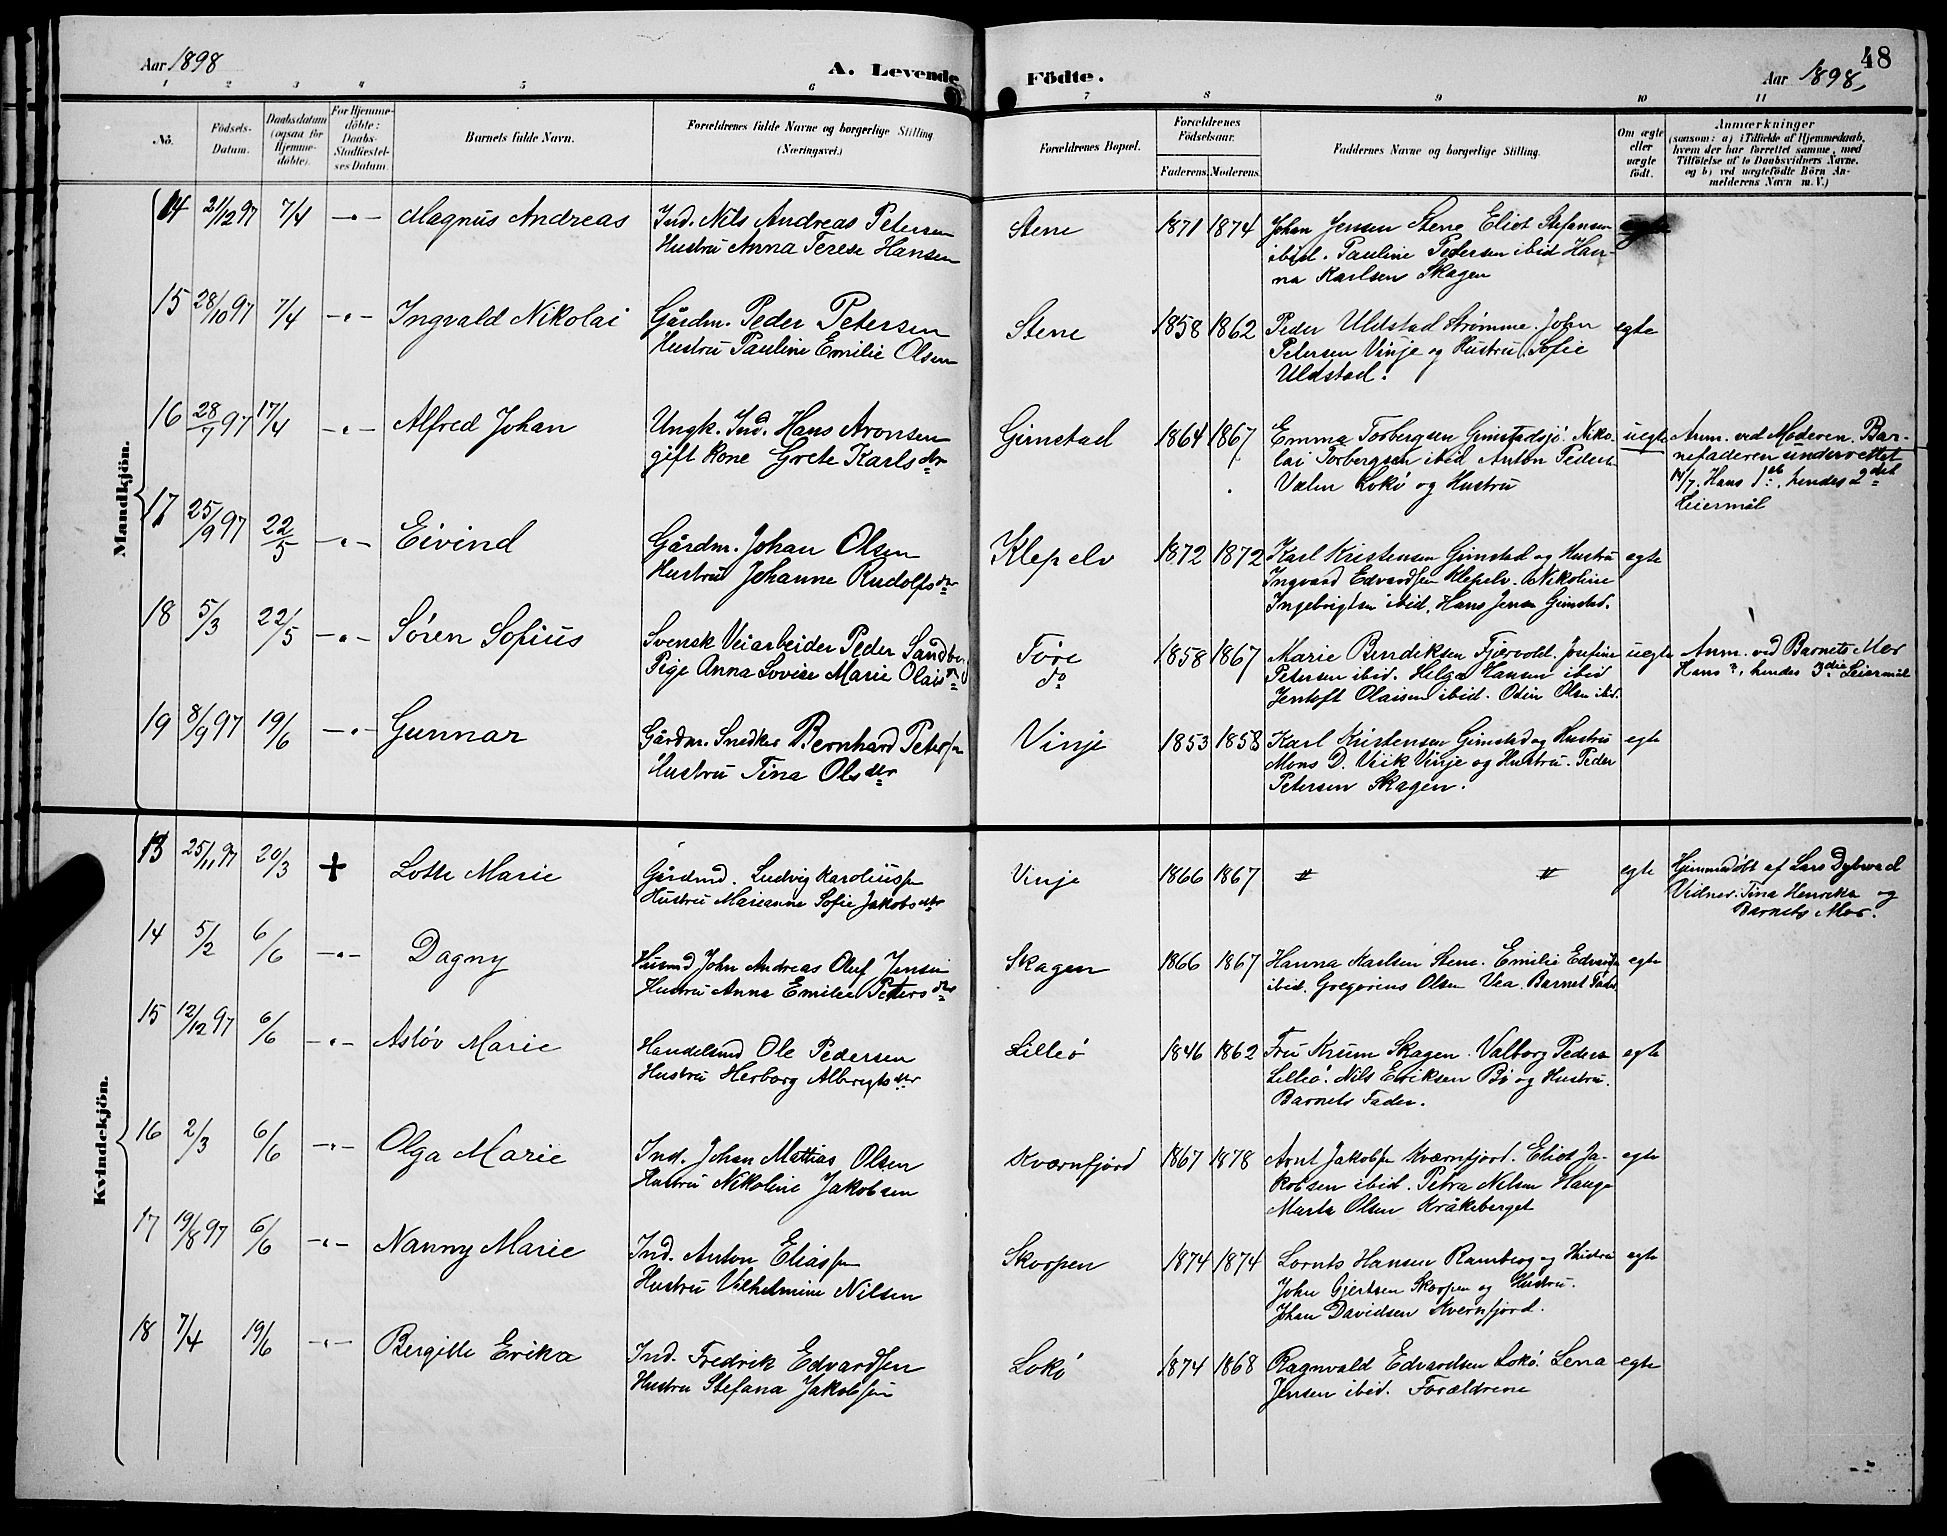 48
Aar 1898
A. Levende Födte.
Aar 1898,
1 2 3 4 5 6 7 8 9 10 11
No.
Födsels-
Datum.
Daabsdatum
(ogsaa for
Hjemme-
döbte).
For Hjemme-
döbte:
Daabs-
Stadfæstel-
ses Datum.
Barnets fulde Navn.
Forældrenes fulde Navne og borgerlige Stilling
(Næringsvei.)
Forældrenes Bopæl.
Forældrenes
Födselsaar.
Faderens. Moderens.
Faddernes Navne og borgerlige Stilling.
Om ægte
eller
uægte
födt.
Anmærkninger
(saasom: a) i Tilfælde af Hjemmedaab,
hvem der har forrettet samme, med
Tilföielse af to Daabsvidners Navne,
og b) ved uægtefödte Börn An-
melderens Navn m. V.)
Mandkjön.
14 2/12 97 7/4 -"- Magnus Andreas
Ind. Nils Andreas Petersen
Hustru Anna Terese Hansen
Stene 1871 1874
Johan Jensen Stene Eliot Stefansen
ibid. Pauline Pedersen ibid Han-
na Karlsen Skagen
egte
15 28/10 97 7/4 -"- Ingvald Nikolai
Gårdm. Peder Petersen
Hustru Pauline Emilie Olsen
Stene 1858 1862
Peder Uldstad Strømme. John
Petersen Vinje og Hustru. Sofie
Uldstad.
egte
16 28/7 97 17/4 -"- Alfred Johan
Ungk. Ind. Hans Aronsen
gift Kone Grete Karlsdtr
Gimstad 1864 1867
Emma Torbergsen Gimstadsjö. Niko-
lai Torbergsen ibid Anton Peders.
Valen Lokö og Hustru
uegte
Anm. ved Moderen. Bar-
nefaderen underrettet
14/7. Hans 1ste, hendes 2det
Leiermål
17 25/9 97 22/5 -"- Eivind
Gårdm. Johan Olsen
Hustru Johanne Rudolfsdtr
Klepelv 1872 1872
Karl Kristensen Gimstad og Hustru
Ingvard Edvardsen Klepelv. Nikoline
Ingebrigtsen ibid. Hans Jensen Gimstad.
egte
18 5/3 22/5 -"- Søren Sofius
Svensk Veiarbeider Peder Sandberg
Pige Anna Lovise Marie Olaisdtr
Føre
do
1858 1867
Marie Bendiksen Fjærvold. Josefine
Petersen ibid. Helga Hansen ibid
Jentoft Olaisen ibid. Odin Olsen ibid.
uegte
Anm. ved Barnets Mor
Hans ?, hendes 3die Leiermål
19 8/9 97 19/6 -"- Gunnar
Gårdm. Snedker Bernhard Petersen
Hustru Tina Olsdtr
Vinje 1853 1858
Karl Kristensen Gimstad og Hustru
Mons D. Viik Vinje og Hustru. Peder
Petersen Skagen.
egte
Kvindekjön.
13 25/11 97 20/3 + Lotte Marie
Gårdmd. Ludvig Karoliussen
Hustru Marianne Sofie Jakobsdtr
Vinje 1866 1867
" "
egte
Hjemmedöbt af Lars Dybwad
Vidner. Tina Henrika og
Barnets Mor.
14 5/2 6/6 -"- Dagny
Husmd John Andreas Oluf Jensen
Hustru Anna Emilie Pettersdtr
Skagen 1866 1867
Hanna Karlsen Stene. Emilie Edvards.
ibid. Gregorius Olsen Vea. Barnets Fader
egte
15 12/12 97 6/6 -"- Asløv Marie
Handelsmd Ole Pedersen
Hustru Herborg Albregtsdtr
Lilleö 1846 1862
Fru Krum Skagen. Valborg Peders.
Lilleö. Nils Eriksen Bö og Hustru.
Barnets Fader.
egte
16 2/3 6/6 -"- Olga Marie
Ind. Johan Mathias Olsen
Hustru Nikoline Jakobsen
Kværnfjord 1867 1878
Arnt Jakobsen Kværnfjord. Eliot Ja-
kobsen ibid. Petra Nilsen Hauge
Marta Olsen Kråkeberget
egte
17 19/8 97 6/6 -"- Nanny Marie
Ind. Anton Eliassen
Hustru Vilhelmine Nilsen
Skorpen 1874 1874
Lornts Hansen Ramberg og Hustru
John Gjertsen Skorpen og Hustru.
Johan Davidsen Kvernfjord.
egte
18 7/4 19/6 -"- Bergitte Erika
Ind. Fredrik Edvardsen
Hustru Stefana Jakobsen
Lokö 1874 1868
Ragnvald Edvardsen Lokö. Lena
Jensen ibid. Forældrene
egte